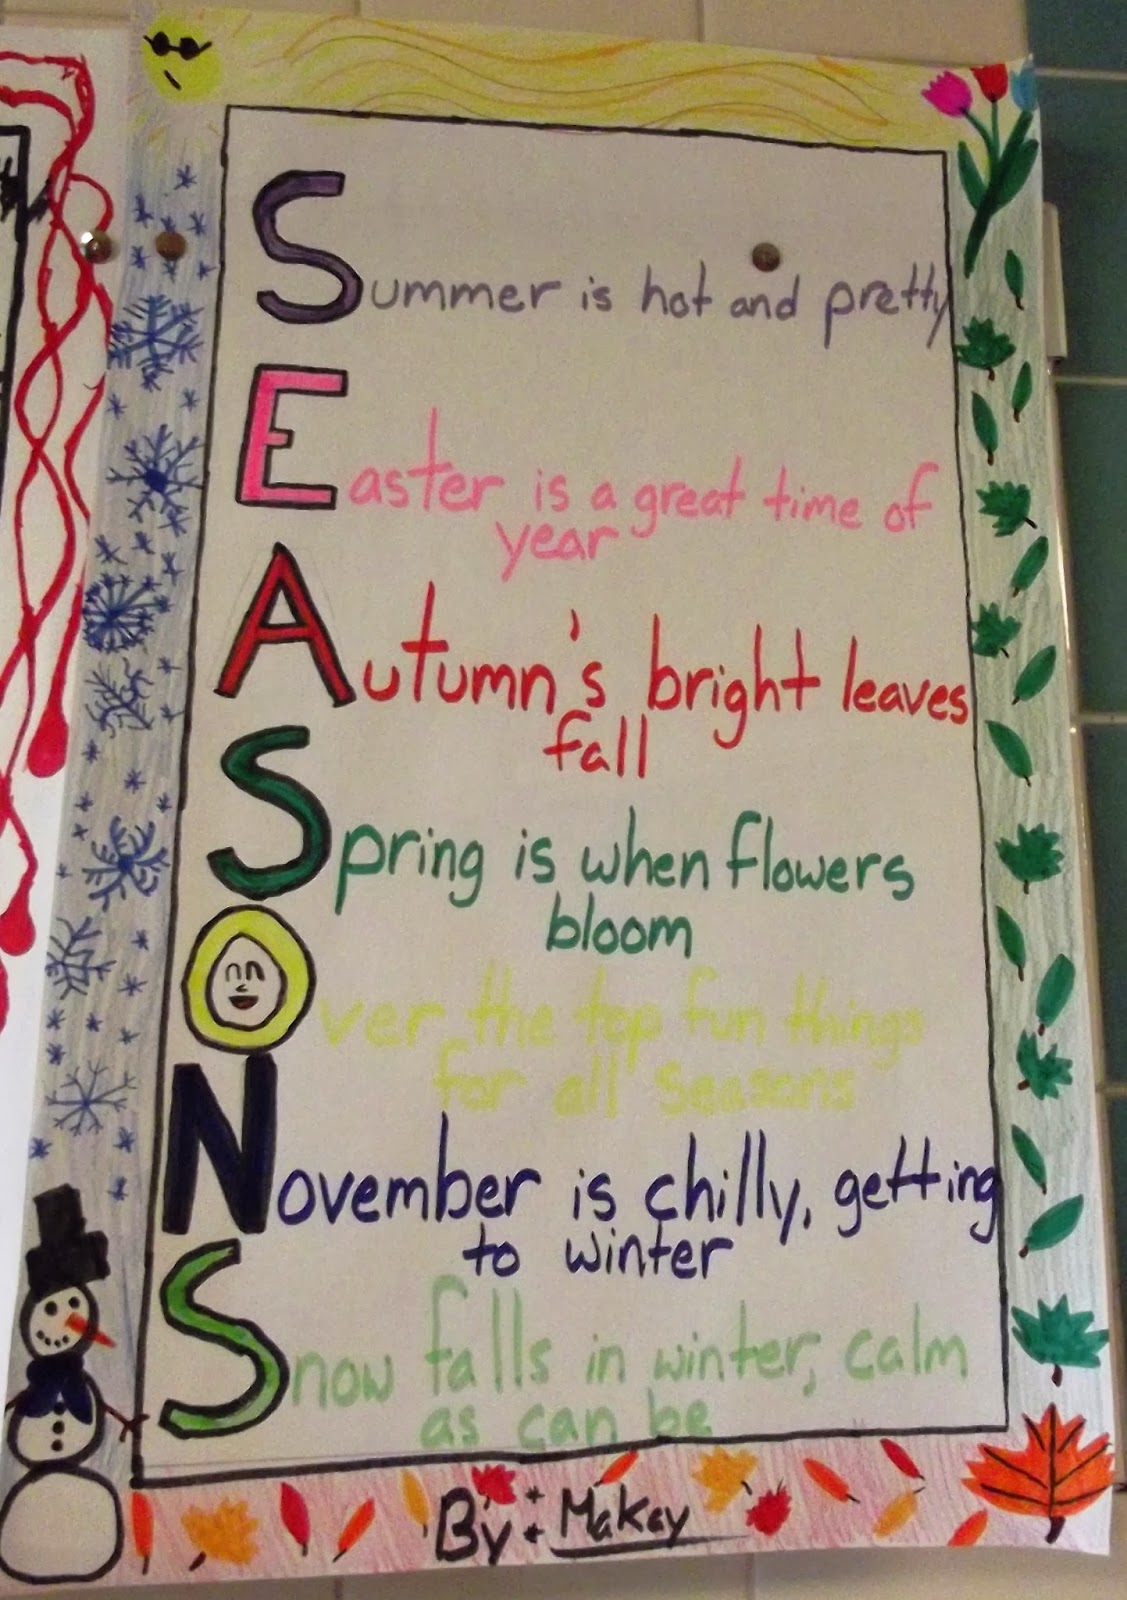 Summer is hot and pretty
Easter is a great time of
year
Autumn's bright leaves
fall
Spring is when flowers
bloom
Over the top fun things
for all seasons
November is chilly, getting
to winter
Snow falls in winter, calm
as can be
By: Makay